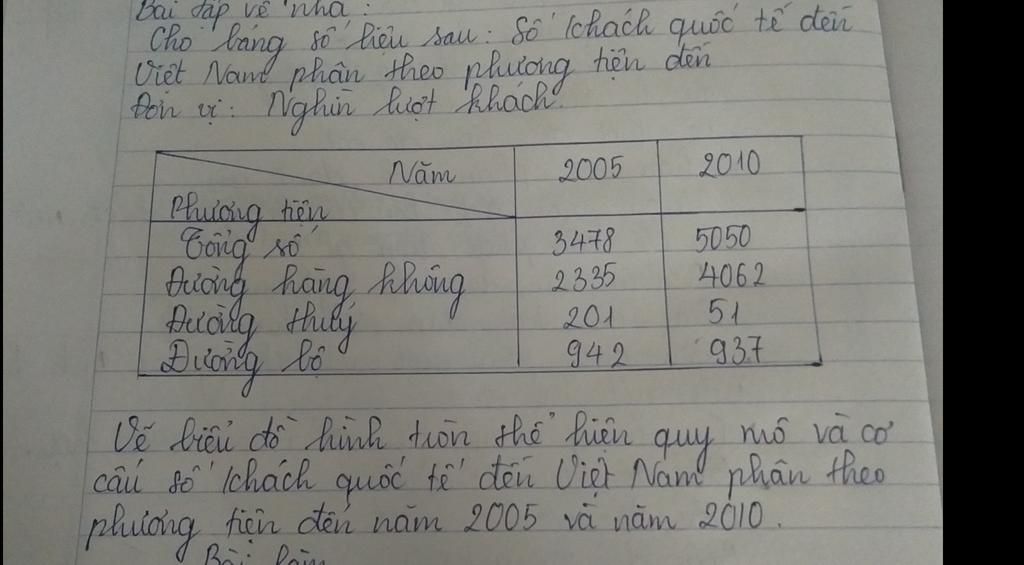 Bài tập về nhà:
Cho bảng số liệu sau: Số khách quốc tế đến
Việt Nam phân theo phương tiện đến
Đơn vị: Nghìn lượt khách.
Năm 2005 2010
Phương tiện
Tổng số 3478 5050
Đường hàng không 2335 4062
Đường thuỷ 201 51
Đường bộ 942 937
Vẽ biểu đồ hình tròn thể hiện quy mô và cơ
cấu số khách quốc tế đến Việt Nam phân theo
phương tiện đến năm 2005 và năm 2010.
Bài làm